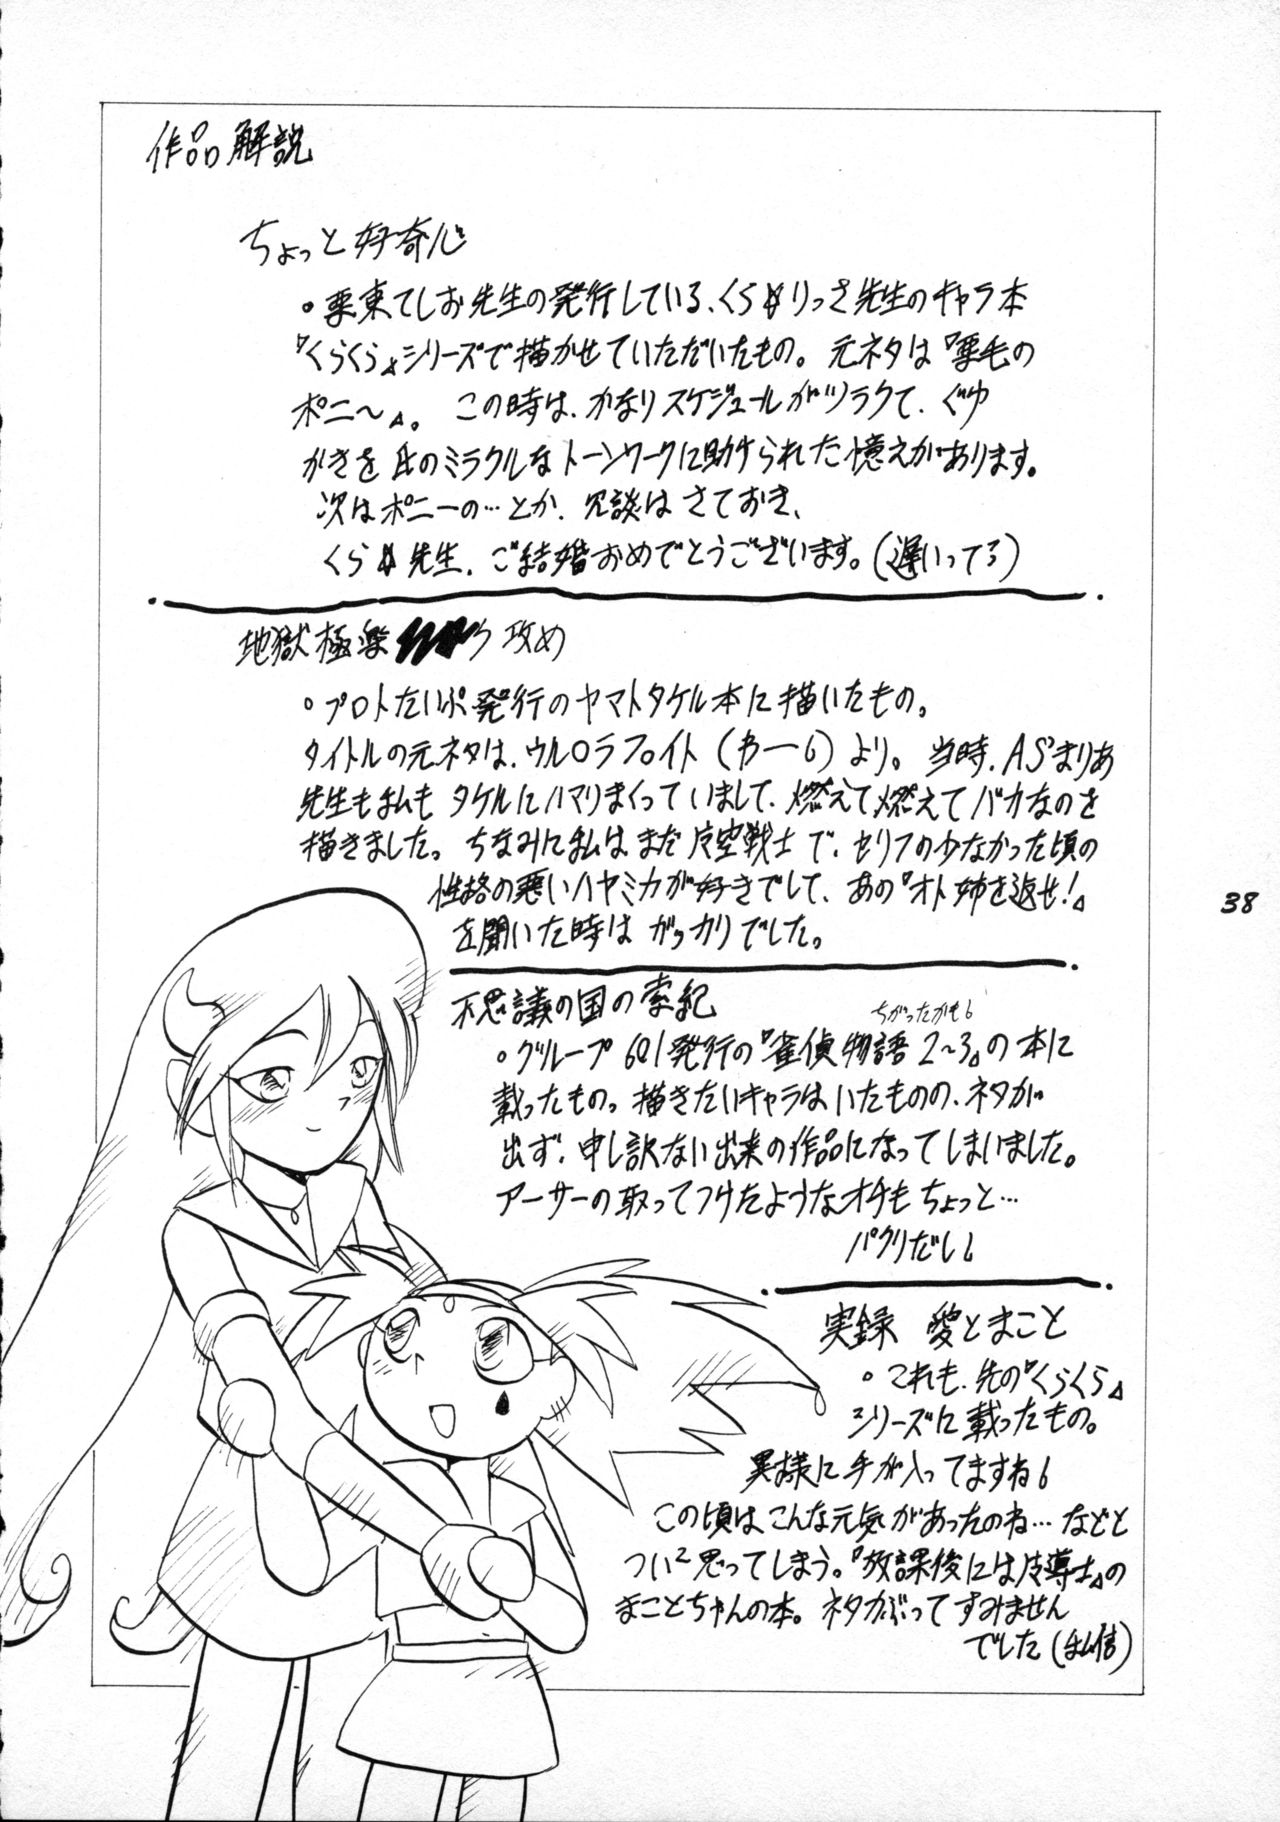 作品解説
ちょっと好奇心
◦栗東てしお先生の発行している、くら☆りっさ先生のキャラ本
『くらくら』シリーズで描かせていただいたもの。元ネタは『栗毛の
ポニ〜』。この時は、かなりスケジュールがツラクて、ぐゆ
かきを氏のミラクルなトーンワークに助けられた憶えがあります。
次はポニーの…とか、冗談はさておき、
くら☆先生、ご結婚おめでとうございます。(遅いってる)
地獄極楽 攻め
◦プロトたいぷ発行のヤマトタケル本に描いたもの。
タイトルの元ネタは、ウルロラフ イト(わー6)より。当時、AS'まりあ
先生も私もタケルにハマりまくっていまして、燃えて燃えてバカなのを
描きました。ちなみに私はまだ 空戦士で、セリフの少なかった頃の
性格の悪いハヤミカが好きでして、あの『オト姉を返せ!』
を聞いた時はガッカリでした。
不思議の国の索紀
ちがったかも6
◦グループ601発行の『雀偵物語2〜3』の本に
載ったもの。描きたいキャラはいたものの、ネタが
出ず、申し訳ない出来の作品になってしまいました。
アーサーの取ってつけたようなオチもちょっと…
パクリだし6
実録 愛とまこと
◦これも、先の『くらくら』
シリーズに載ったもの。
異様に手が入ってますね6
この頃はこんな元気があったのね…などと
つい²思ってしまう。『放課後には 導士』の
まことちゃんの本。ネタがぶってすみません
でした(私信)
38